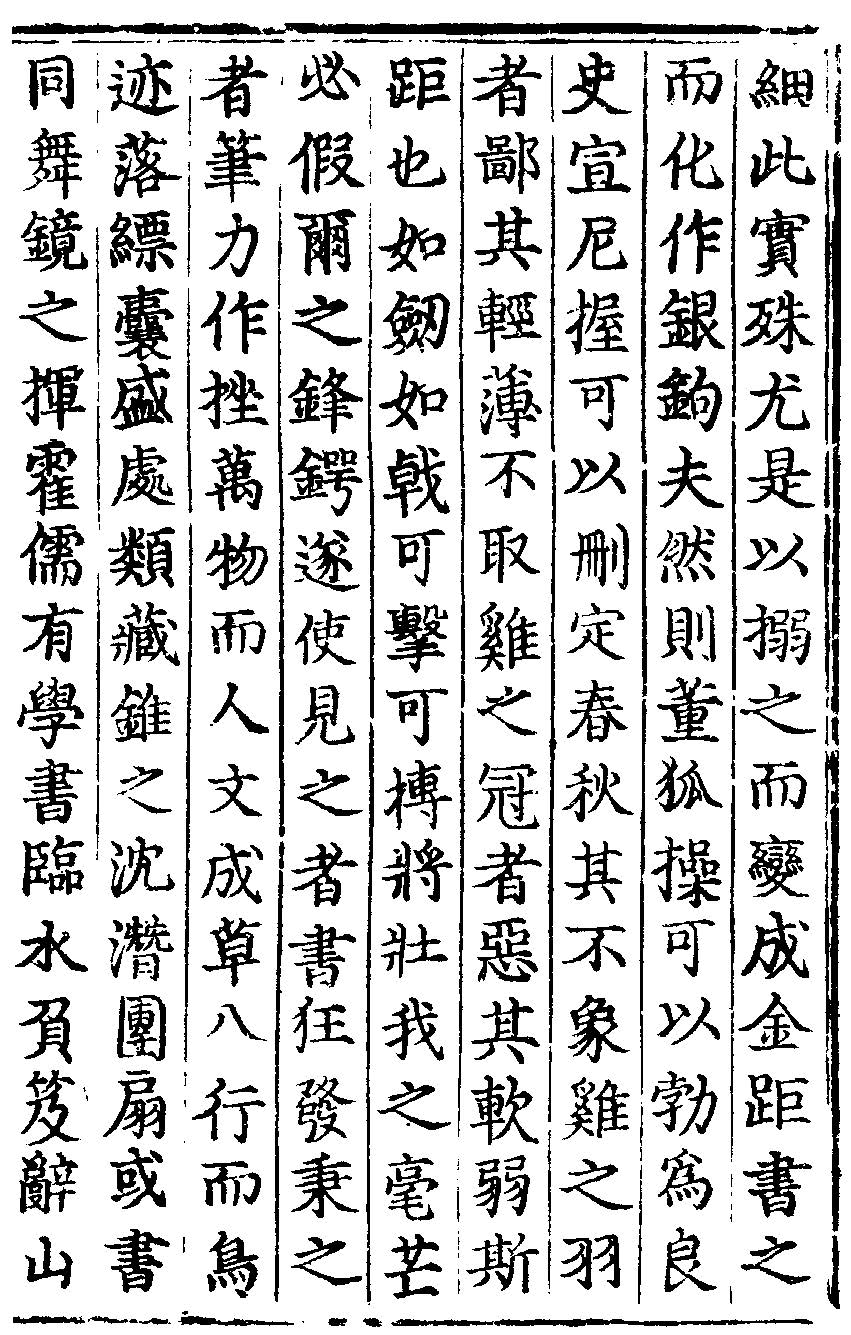 細此實殊尤是以搦之而變成金距書之
而化作銀鉤夫然則董狐操可以勃為良
史宣尼握可以刪定春秋其不象雞之羽
者鄙其輕薄不取雞之冠者惡其軟弱斯
距也如劒如戟可擊可搏將壯我之毫芒
必假爾之鋒鍔遂使見之者書狂發秉之
者筆力作挫萬物而人文成草八行而鳥
迹落縹囊盛處類藏錐之沈潛團扇或書
同舞鏡之揮霍儒有學書臨水負笈辭山